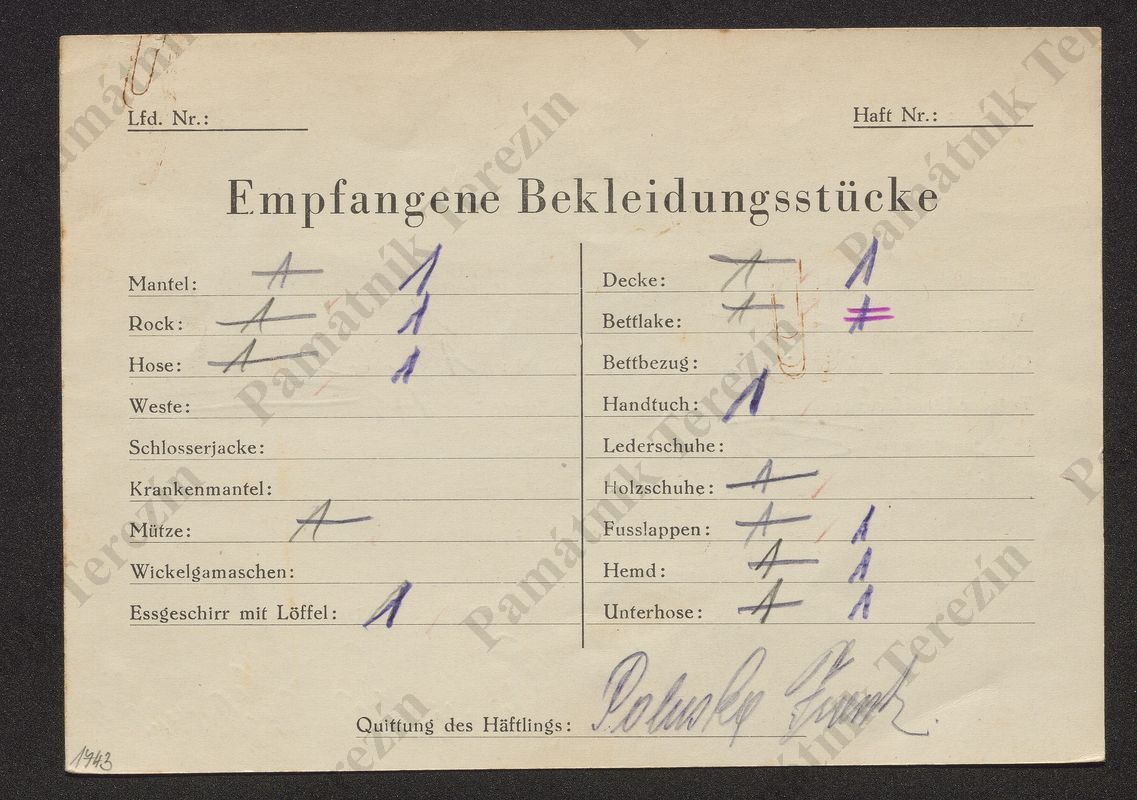 Lfd. Nr.:
Haft Nr.:
Empfangene Bekleidungsstücke
Mantel: 1 1
Rock: 1 1
Hose: 1 1
Weste:
Schlosserjacke:
Krankenmantel:
Mütze: 1
Wickelgamaschen:
Essgeschirr mit Löffel: 1
Decke: 1 1
Bettlake: 1 1
Bettbezug:
Handtuch: 1
Lederschuhe:
Holzschuhe: 1
Fusslappen: 1 1
Hemd: 1 1
Unterhose: 1 1
Quittung des Häftlings:
1943
Památník Terezín